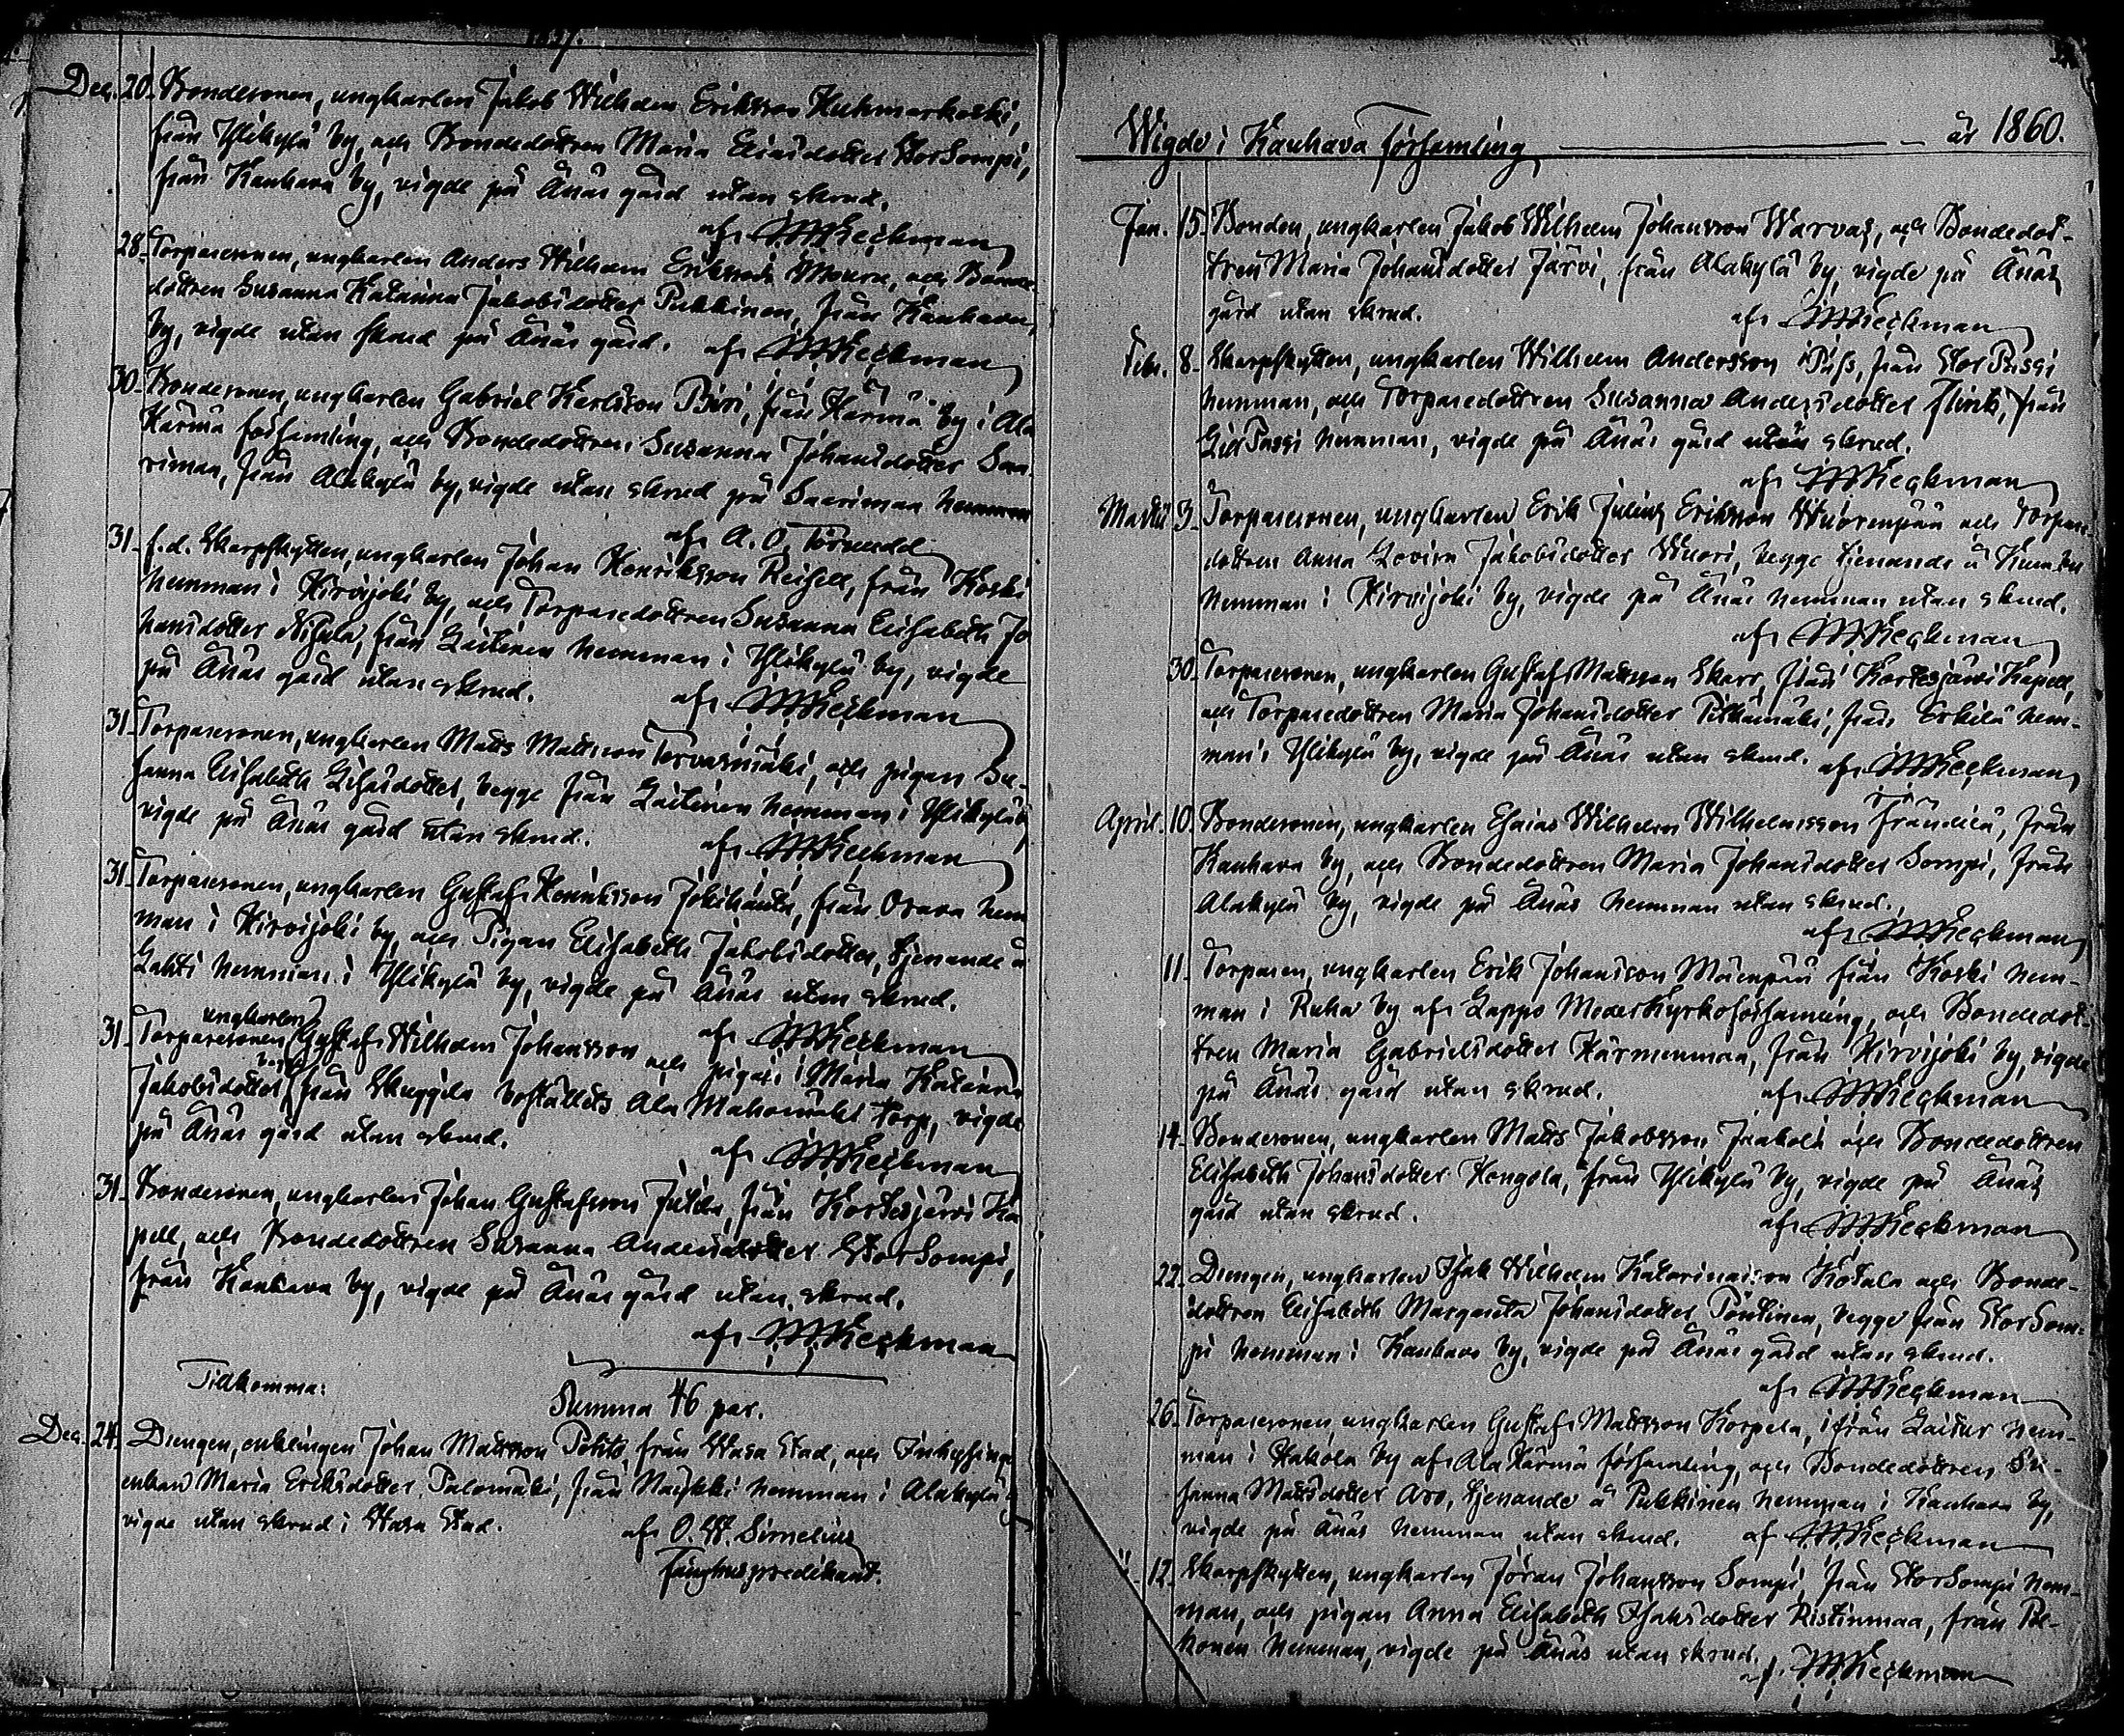 Dec. 20. Bondesonen, ungkarlen Jakob Wilhelm Eriksson Kuhmarkoski,
från Ylikylä by, och Bondedottren Maria Eliasdotter StorSompi,
från Kauhava by, vigde på Ånäs gård utan skrud.
af
28. Torparesonen, ungkarlen Anders Wilhelm Eriksson och Bonde-
dottren Susanna Katarina Jakobsdotter Pukkinen, från Kauhava
by, vigde utan skrud på Ånäs gård. af
30. Bondesonen, ungkarlen Gabriel Karlsson från Härmä by i Ala
Härmä församling, och Bondedottren Susanna Johansdotter Saa-
rimaa, från Alakylä by, vigde utan skrud på Saarimaa hemman
af A. O. Törnudd
31. f.d. Skarpskytten, ungkarlen Johan Henriksson från Koski
hemman i Hirvijoki by, och Torparedottren Susanna Elisabeth Jo-
hansdotter från Laitinen hemman i Ylikylä by, vigde
på Ånäs gård utan skrud. af
31. Torparesonen, ungkarlen Matts Mattsson Tervasmäki, och pigan Su-
sanna Elisabeth begge från Laitinen hemman i Ylikylä
vigde på Ånäs gård utan skrud. af
31. Torparesonen, ungkarlen Gustaf Henriksson från Orava hem
man i Hirvijoki by, och Pigan Elisabeth Jakobsdotter, tjenande å
Lahti hemman i Ylikylä by, vigde på Ånäs utan skrud.
ungkarlen af
31. Torparesonen Gustaf Wilhelm Johansson och pigan Maria Katarina
Jakobsdotter från boställets Ala torp, vigde
på Ånäs gård utan skrud. af
31. Bondesonen, ungkarlen Johan Gustafsson från Kortesjärvi Ka
pell, och Bondedottren Susanna Andersdotter StorSompi,
från Kauhava by, vigde på Ånäs gård utan skrud.
af
Summa 46 par.
Tillkomma:
Dec. 24. Drengen, enklingen Johan Mattsson från Wasa Stad, och
enkan Maria Eriksdotter Palomäki, från hemman i Alakylä
vigde utan skrud i Wasa Stad. af O. W. Simelius
Fånghuspredikant.
Wigde i Kauhava församling år 1860.
Jan. 15. Bonden, ungkarlen Jakob Wilhelm Johansson Warvas, och Bondedot-
tren Maria Johansdotter Järvi, från Alakylä by, vigde på Ånäs
gård utan skrud. af
Febr. 8. Skarpskytten, ungkarlen Wilhelm Andersson från Stor Passi
hemman, och Torparedottren Susanna Andersdotter Flink, från
Passi hemman, vigde på Ånäs gård utan skrud.
af
Martii 3. Torparesonen, ungkarlen Erik Julius Eriksson Wuorenpää och Torpare
dottren Anna Lovisa Jakobsdotter Wuori, begge tjenande å
hemman i Hirvijoki by, vigde på Ånäs hemman utan skrud.
af
30. Torparesonen, ungkarlen Gustaf Mattsson Skarr, från Kortesjärvi Kapell,
och Torparedottren Maria Johansdotter Pitkämäki, från Erkilä hem-
man i Ylikylä by, vigde på Ånäs utan skrud. af
April. 10. Bondesonen, ungkarlen Esaias Wilhelm Wilhelmsson från
Kauhava by, och Bondedottren Maria Johansdotter Sompi, från
Alakylä by, vigde på Ånäs hemman utan skrud.
af
11. Torparen, ungkarlen Erik Johansson Mäenpää från Koski hem-
man i Ruha by af Lappo Moderkyrkoförsamling, och Bondedot-
tren Maria Gabrielsdotter Härmenmaa, från Hirvijoki by, vigde
på Ånäs gård utan skrud. af
14. Bondesonen, ungkarlen Matts Jakobsson Jaakola och Bondedottren
Elisabeth Johansdotter Hongola, från Ylikylä by, vigde på Ånäs
gård utan skrud. af
22. Drengen, ungkarlen Isak Wilhelm Katarinaison Kotala och Bonde-
dottren Elisabeth Margareta Johansdotter Pöntinen, begge från StorSom-
pi hemman i Kauhava by, vigde på Ånäs gård utan skrud.
af
26. Torparesonen, ungkarlen Gustaf Mattsson Korpela, ifrån hem-
man i Hakola by af Ala Härmä församling, och Bondedottren Su-
sanna Mattsdotter Aro, tjenande å Pukkinen hemman i Kauhava by,
vigde på Ånäs hemman utan skrud. af
12. Skarpskytten, ungkarlen Jöran Johansson Sompi, från StorSompi hem-
man, och pigan Anna Elisabeth Isaksdotter Ristinmaa, från Pel-
konen hemman, vigde på Ånäs utan skrud.
af